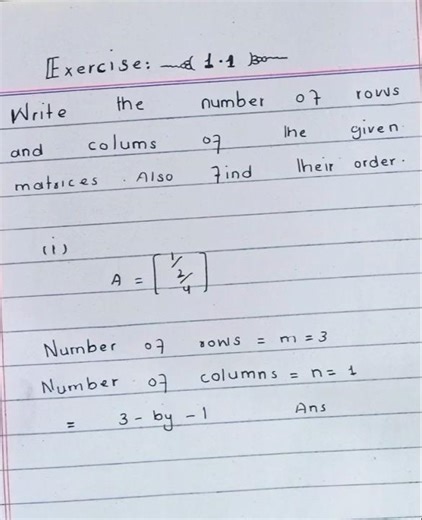 Exercise: 1.1
Write the number of rows
and colums of the given.
matrices. Also Find their order.
(i)
A = [1/
2/
4]
Number of rows = m = 3
Number of columns = n = 1
= 3 - by - 1 Ans